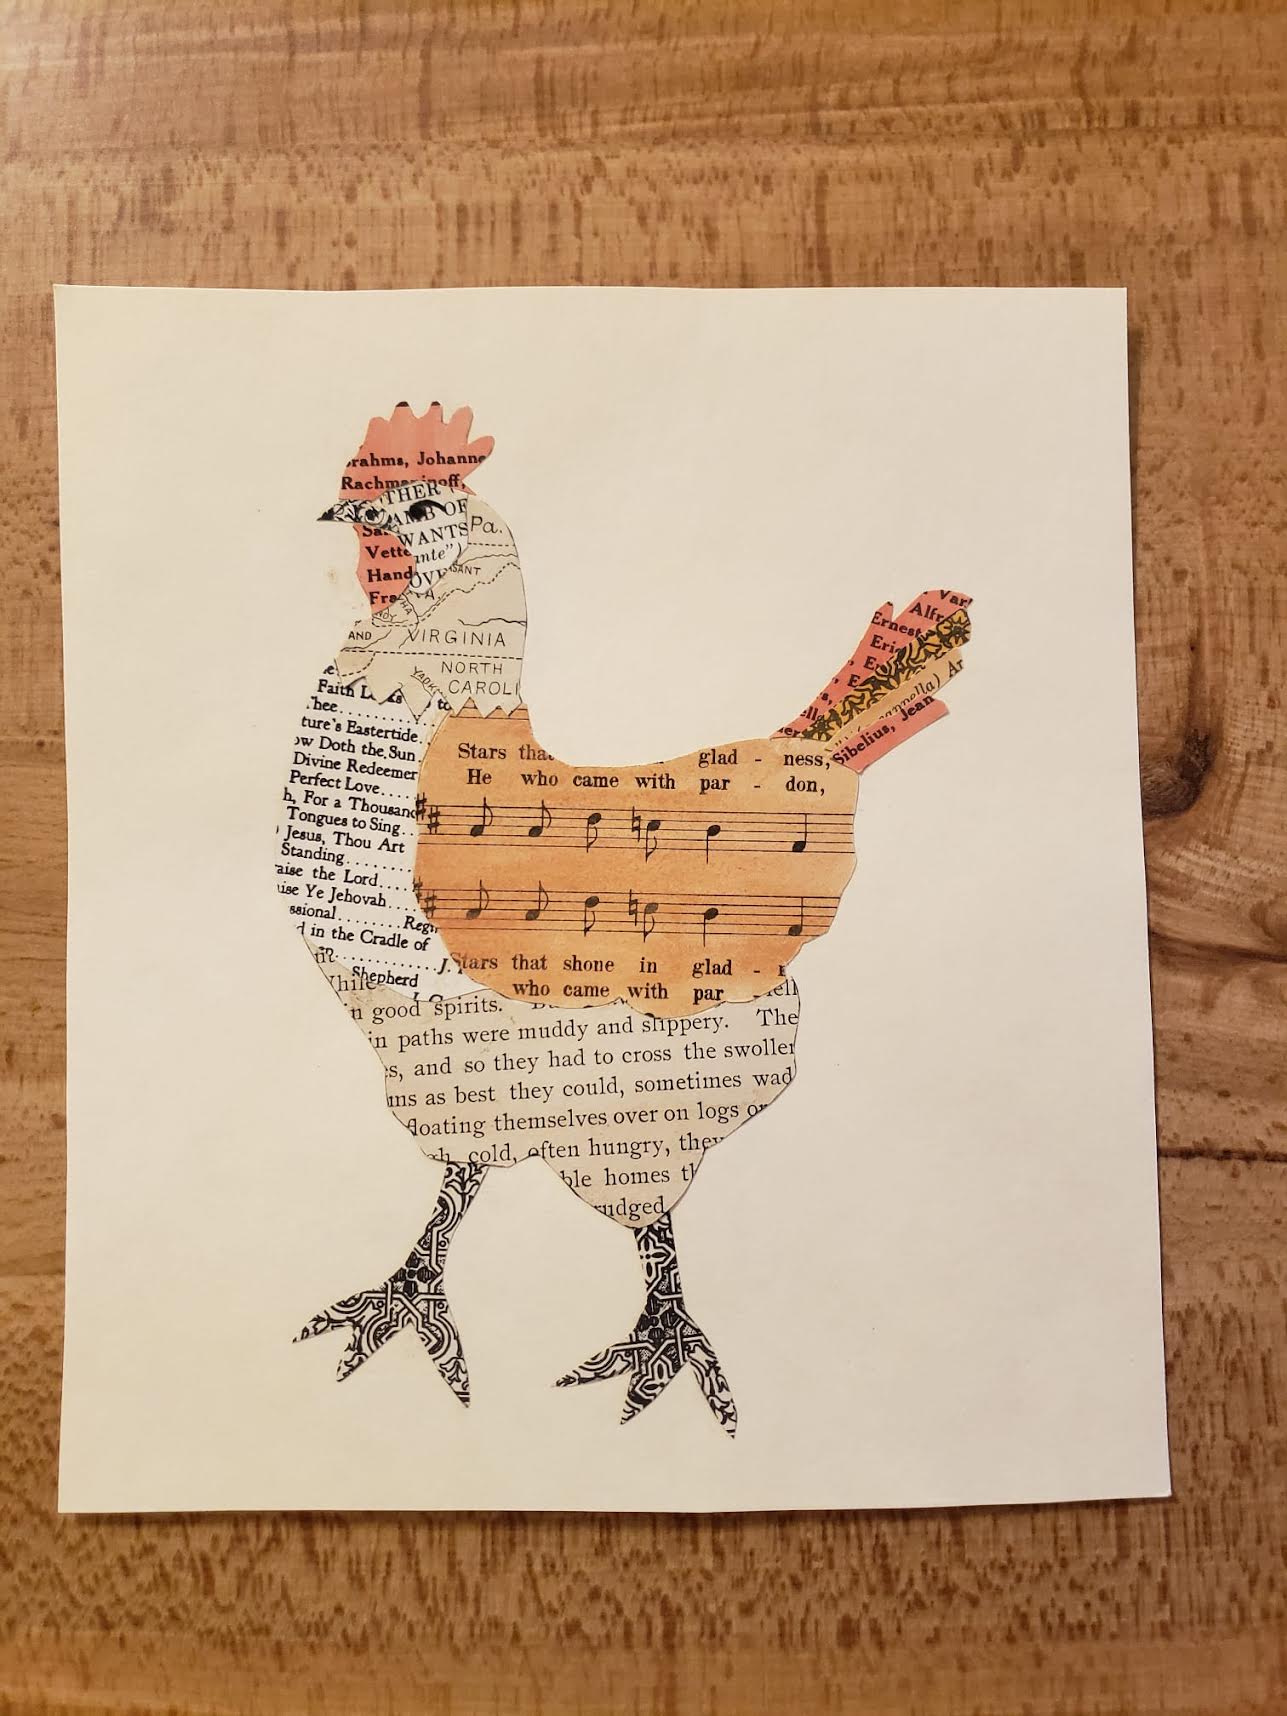 Johanne
THER
LAMB OF
WANTS
Pa.
VIRGINIA
AND
NORTH
YADK
CAROLI
Faith
to
hee
ture's Eastertide
ow Doth the Sun
Divine Redeemer
Perfect Love
h, For a Thousand
Tongues to Sing
Jesus, Thou Art
Standing
aise the Lord
ise Ye Jehovah
ssional
d in the Cradle of
Shepherd
J.
Var
Alfr
Ernest
Eri
Ar
Sibelius, Jean
Stars tha glad - ness,
He who came with par - don,
Stars that shone in glad -
who came with par
n good spirits.
in paths were muddy and slippery. The
s, and so they had to cross the swollen
ms as best they could, sometimes wad
floating themselves over on logs or
gh, cold, often hungry, they
ble homes th
rudged